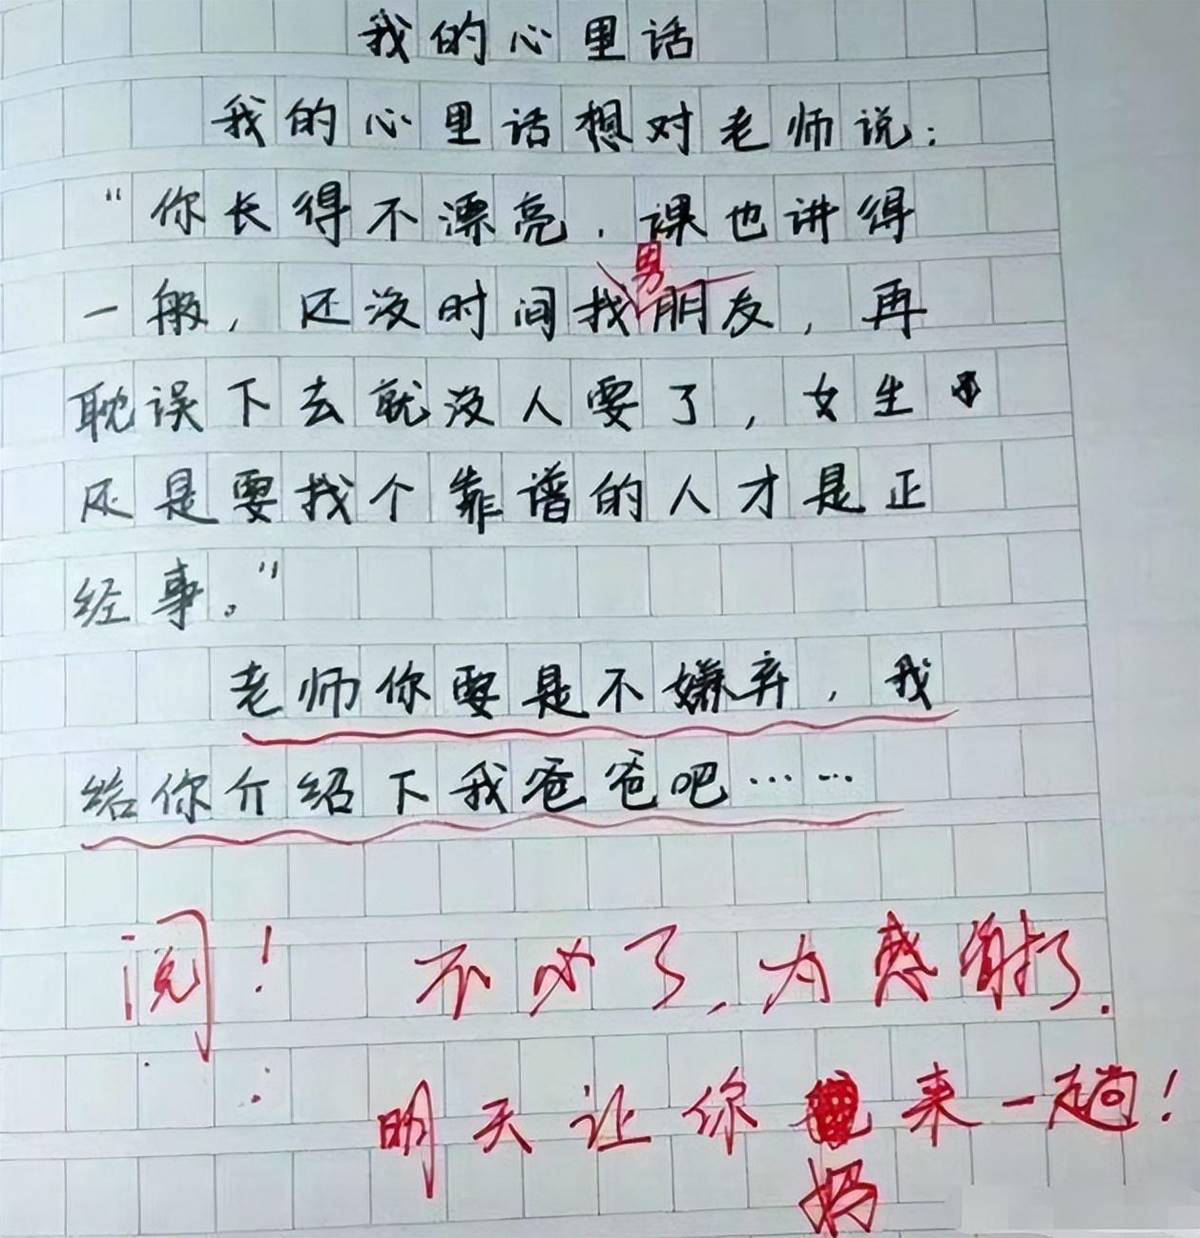 我的心里话
我的心里话想对老师说：
“你长得不漂亮，课也讲得
男
一般，还没时间找朋友，再
耽误下去就没人要了，女生
还是要找个靠谱的人才是正
经事。”
老师你要是不嫌弃，我
给你介绍下我爸爸吧……
阅！ 不必了，为感谢了.
明天让你 来一趟！
妈